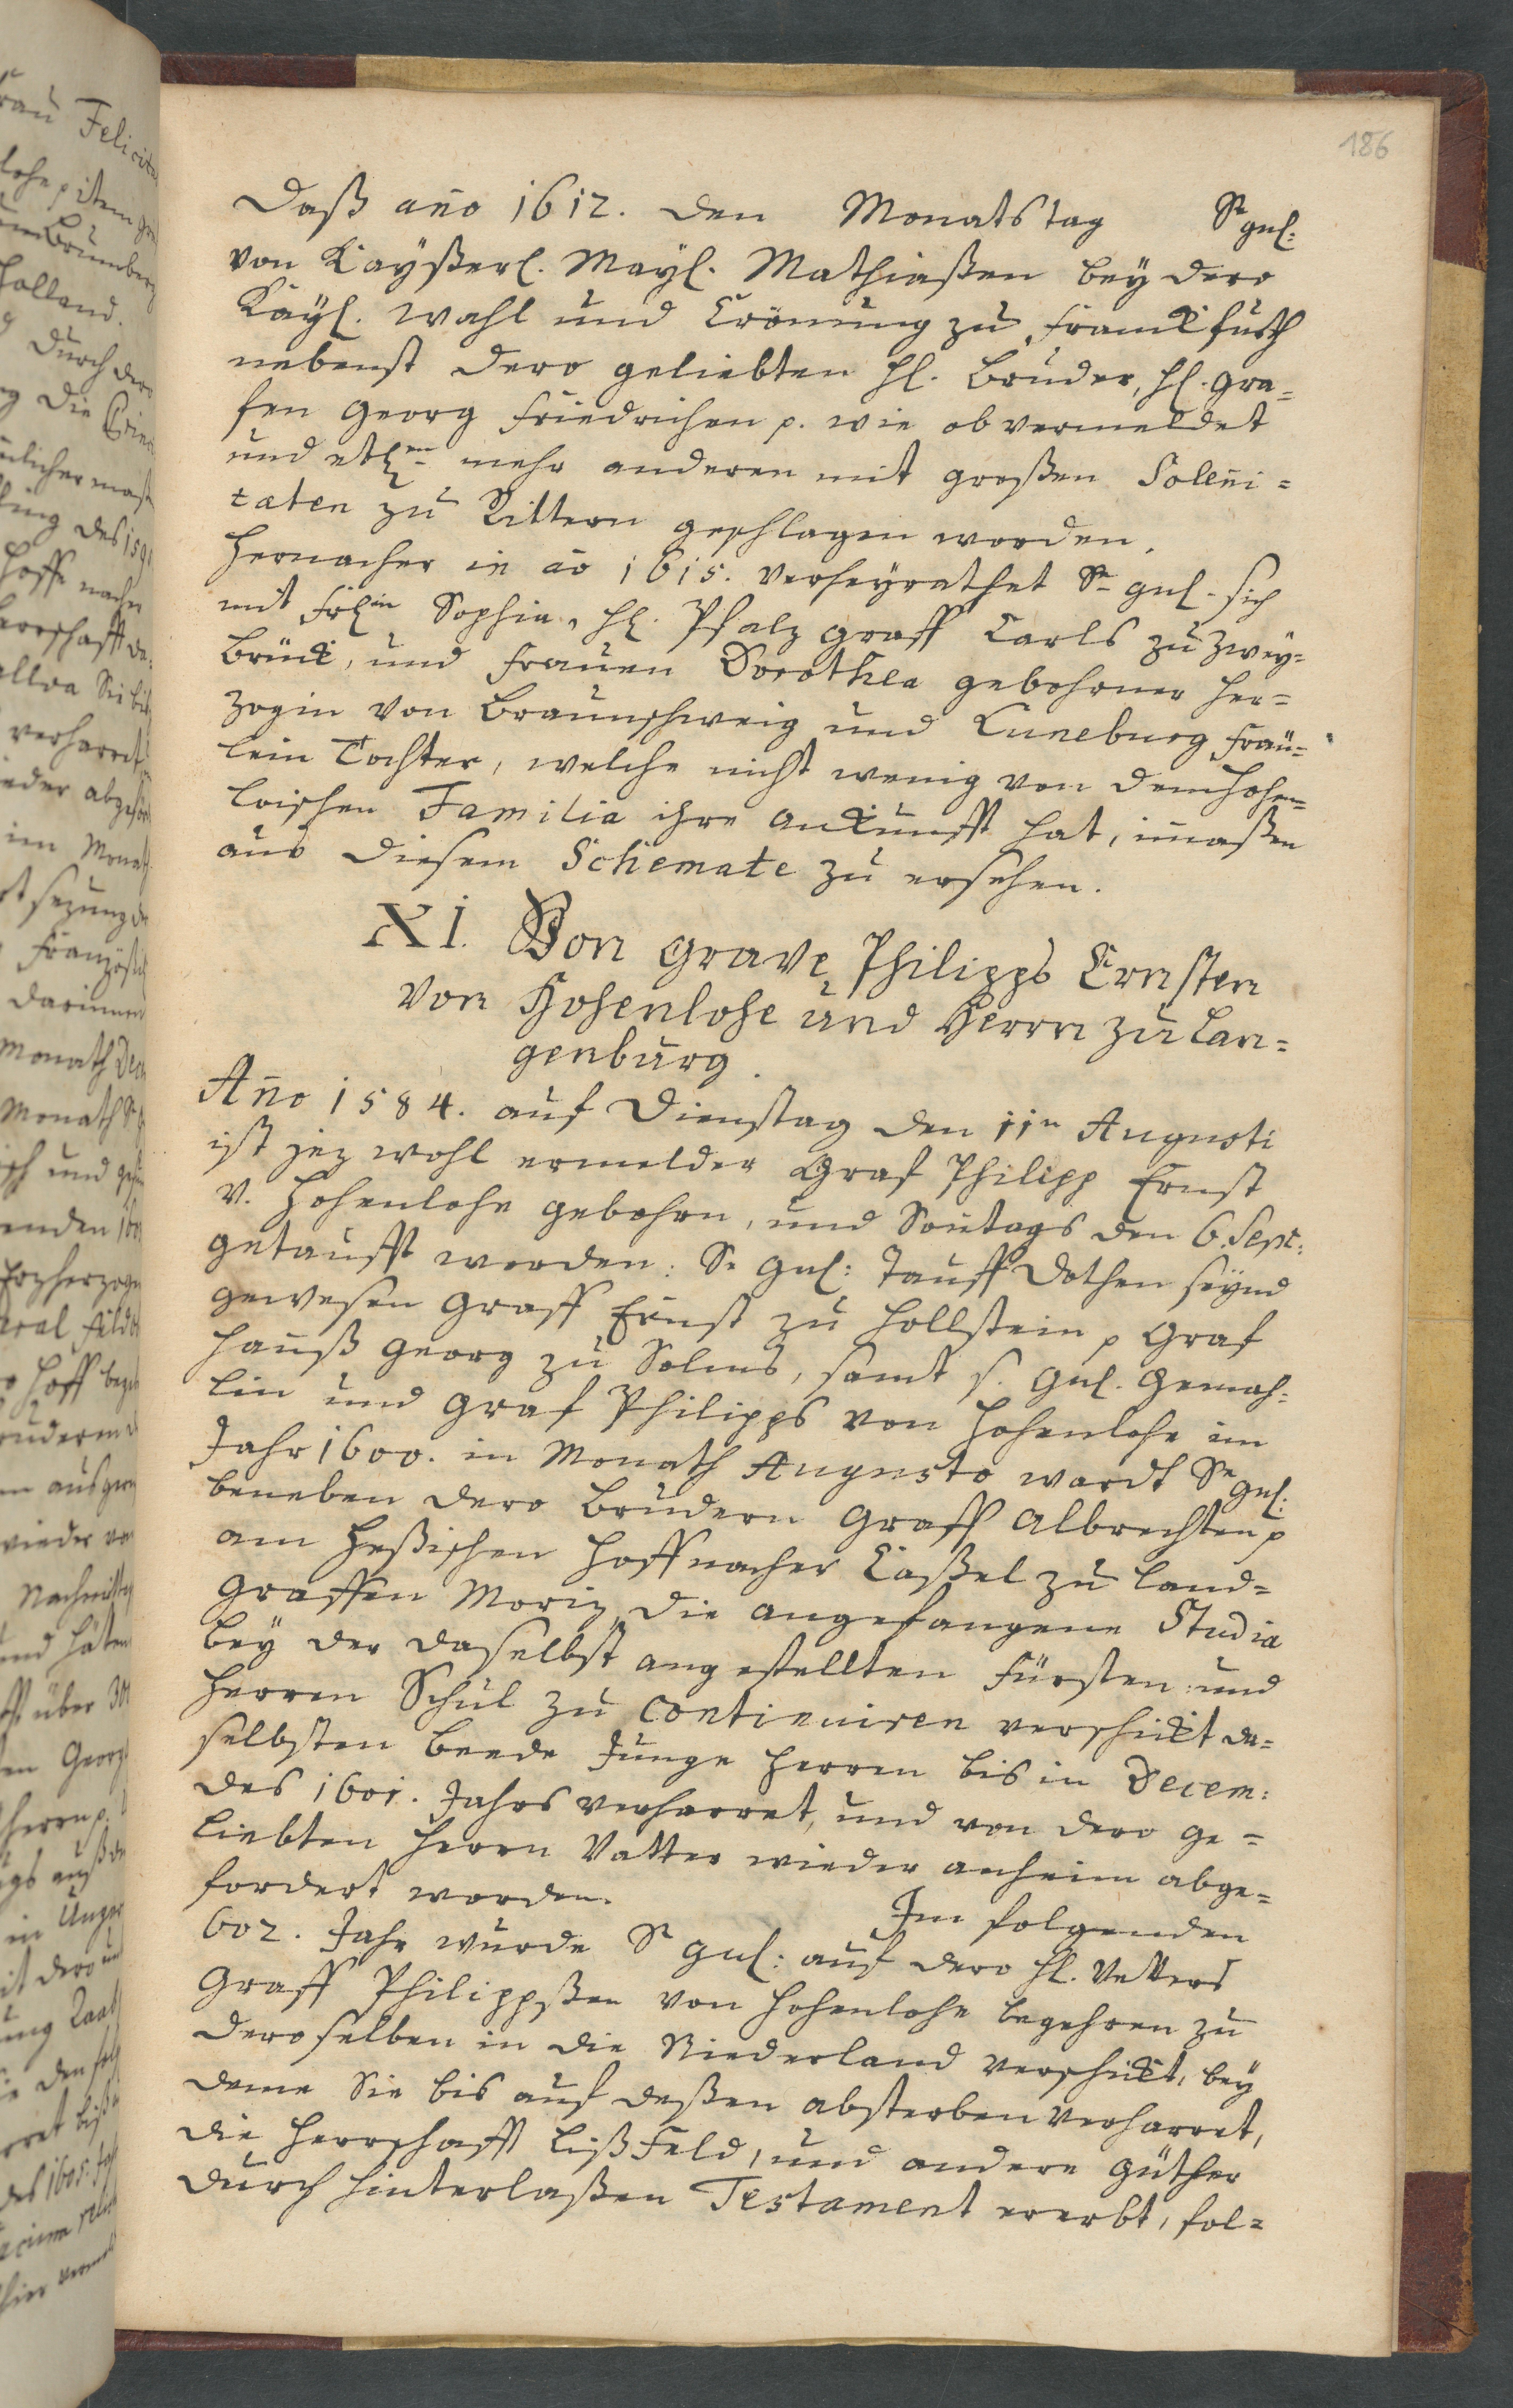 186
Daß año 1612. den Monatstag Se gnl:
von Kaÿßerl. Maÿl. Mathiaßen beÿ dero
Kaÿl. Wahl und Crönung zu Franckfurth
nebenst dero geliebten Hl. Bruder, Hl. Gra=
fen Georg Friedrichen p. wie ob vermeldet
und etlen mehr anderen mit großen Solleñi=
tæten zu Rittern geschlagen worden.
Hernacher in aō 1615. verheÿrathet Se gnl. sich
mit Frlin Sophia, Hl. Pfalz Graff Carls zu Zweÿ=
brück, und Frauen Dorothea gebohrner Her=
zogin von Braunschweig und Luneburg Fräu=
lein Tochter, welche nicht wenig von dem Hohen=
loischen Familia ihre Ankunfft hat, im̄aßen
aus diesem Schemate zu ersehen.
XI. Von Grave Philipps Ernsten
von Hohenlohe und Herrn zu Lan=
genburg.
Año 1584. auf Dienstag den 11n Augusti
ist jez wohl ermelder Graf Philipp Ernst
v. Hohenlohe gebohrn, und Soñtags den 6. Sept:
getaufft worden: Sr Gnl: Tauff Dothen seÿnd
gewesen Graff Ernst zu Hollstein p Graf
Hanß Georg zu Solms, samt s. Gnl. Gemah=
lin und Graf Philipps von Hohenlohe im
Jahr 1600. in Monath Augusto wardt Se Gnl:
beneben dero Brudern Graff Albrechten p
am Heßischen Hoff nacher Caßel zu Land=
Graffen Moriz, die angefangene Studia
beÿ der daselbst angestellten Fürsten und
Herren Schul zu Continuiren verschickt da=
selbsten beede Junge Herren bis in Decem:
des 1601. Jahrs verharret, und von dero ge=
liebten Herrn Vatter wieder anheim abge=
fordert worden. Im folgenden
602. Jahr wurde Se gnl: auf dero Hl. Vetters
Graff Philippßen von Hohenlohe begehren zu
deroselben in die Niederland verschickt, beÿ
deme Sie bis auf deßen absterben verharret,
die Herrschafft Lißfeld, und andere Güther
durch hinterlaßen Testament ererbt, fol=